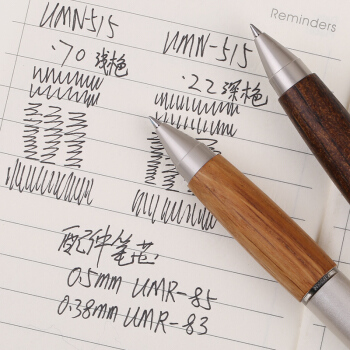 Reminders
UMN-515
UMN-515
·70 浅色
·22 深色
配件笔芯
0.5mm UMR-85
0.38mm UMR-83